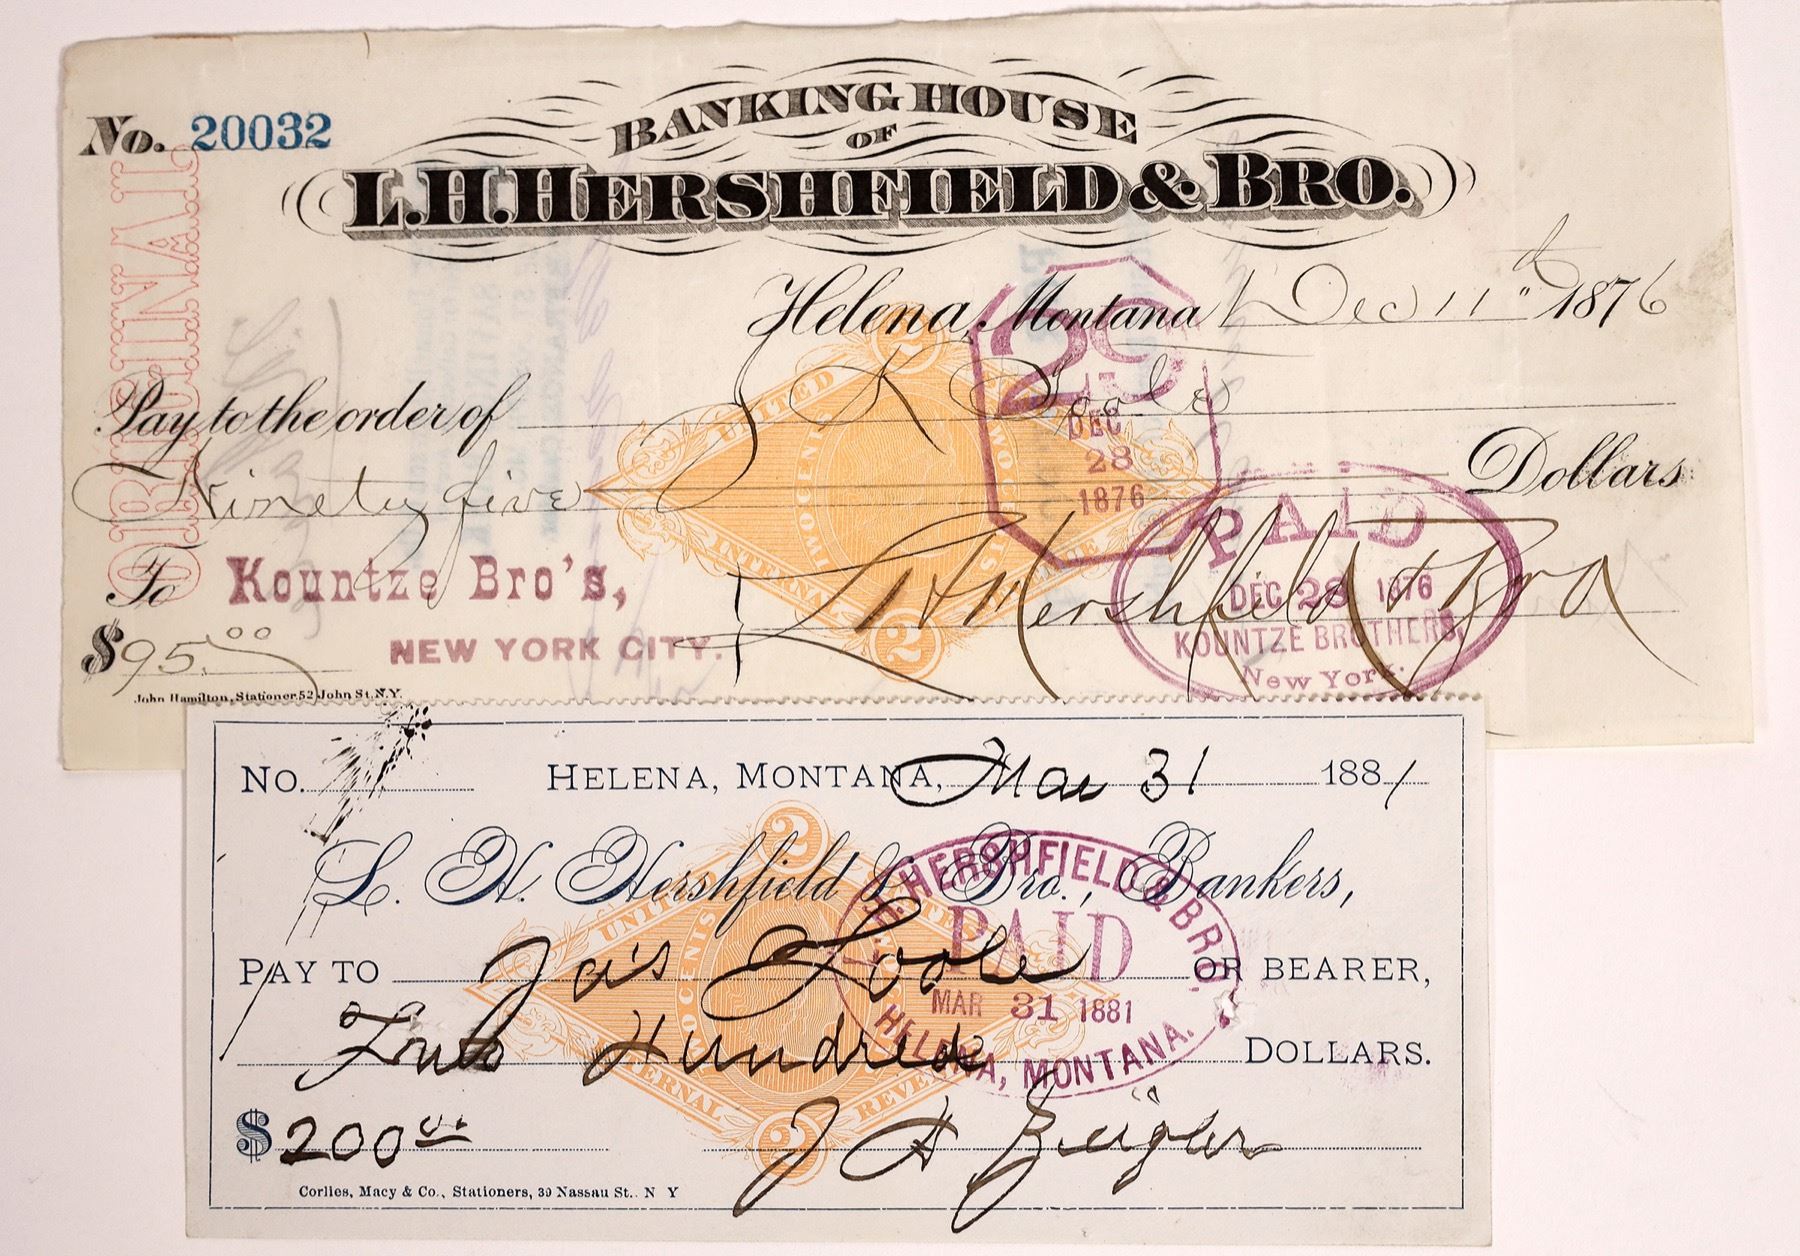 No. 20032
BANKING HOUSE
OF
L.H. HERSHFIELD & BRO.
ORIGINAL
Helena, Montana Dec 11th 1876
Pay to the order of
Ninety five Dollars
To Kountze Bro's,
NEW YORK CITY.
L H Hershfield & Bro
$95.00
John Hamilton, Stationer 52 John St. N.Y.
UNITED
TWO CENTS
INTERNAL
2
2
29
DEC
28
1876
PAID
DEC 28 1876
KOUNTZE BROTHERS,
New York.
No. HELENA, MONTANA, Mar 31 1881
L. H. Hershfield & Bro., Bankers,
PAY TO Jas OR BEARER,
Two Hundred DOLLARS.
$200
Corlies, Macy & Co., Stationers, 39 Nassau St.. N Y
2
UNITED STATES
INTERNAL REVENUE
2
L.H. HERSHFIELD & BRO.
PAID
MAR 31 1881
HELENA, MONTANA.